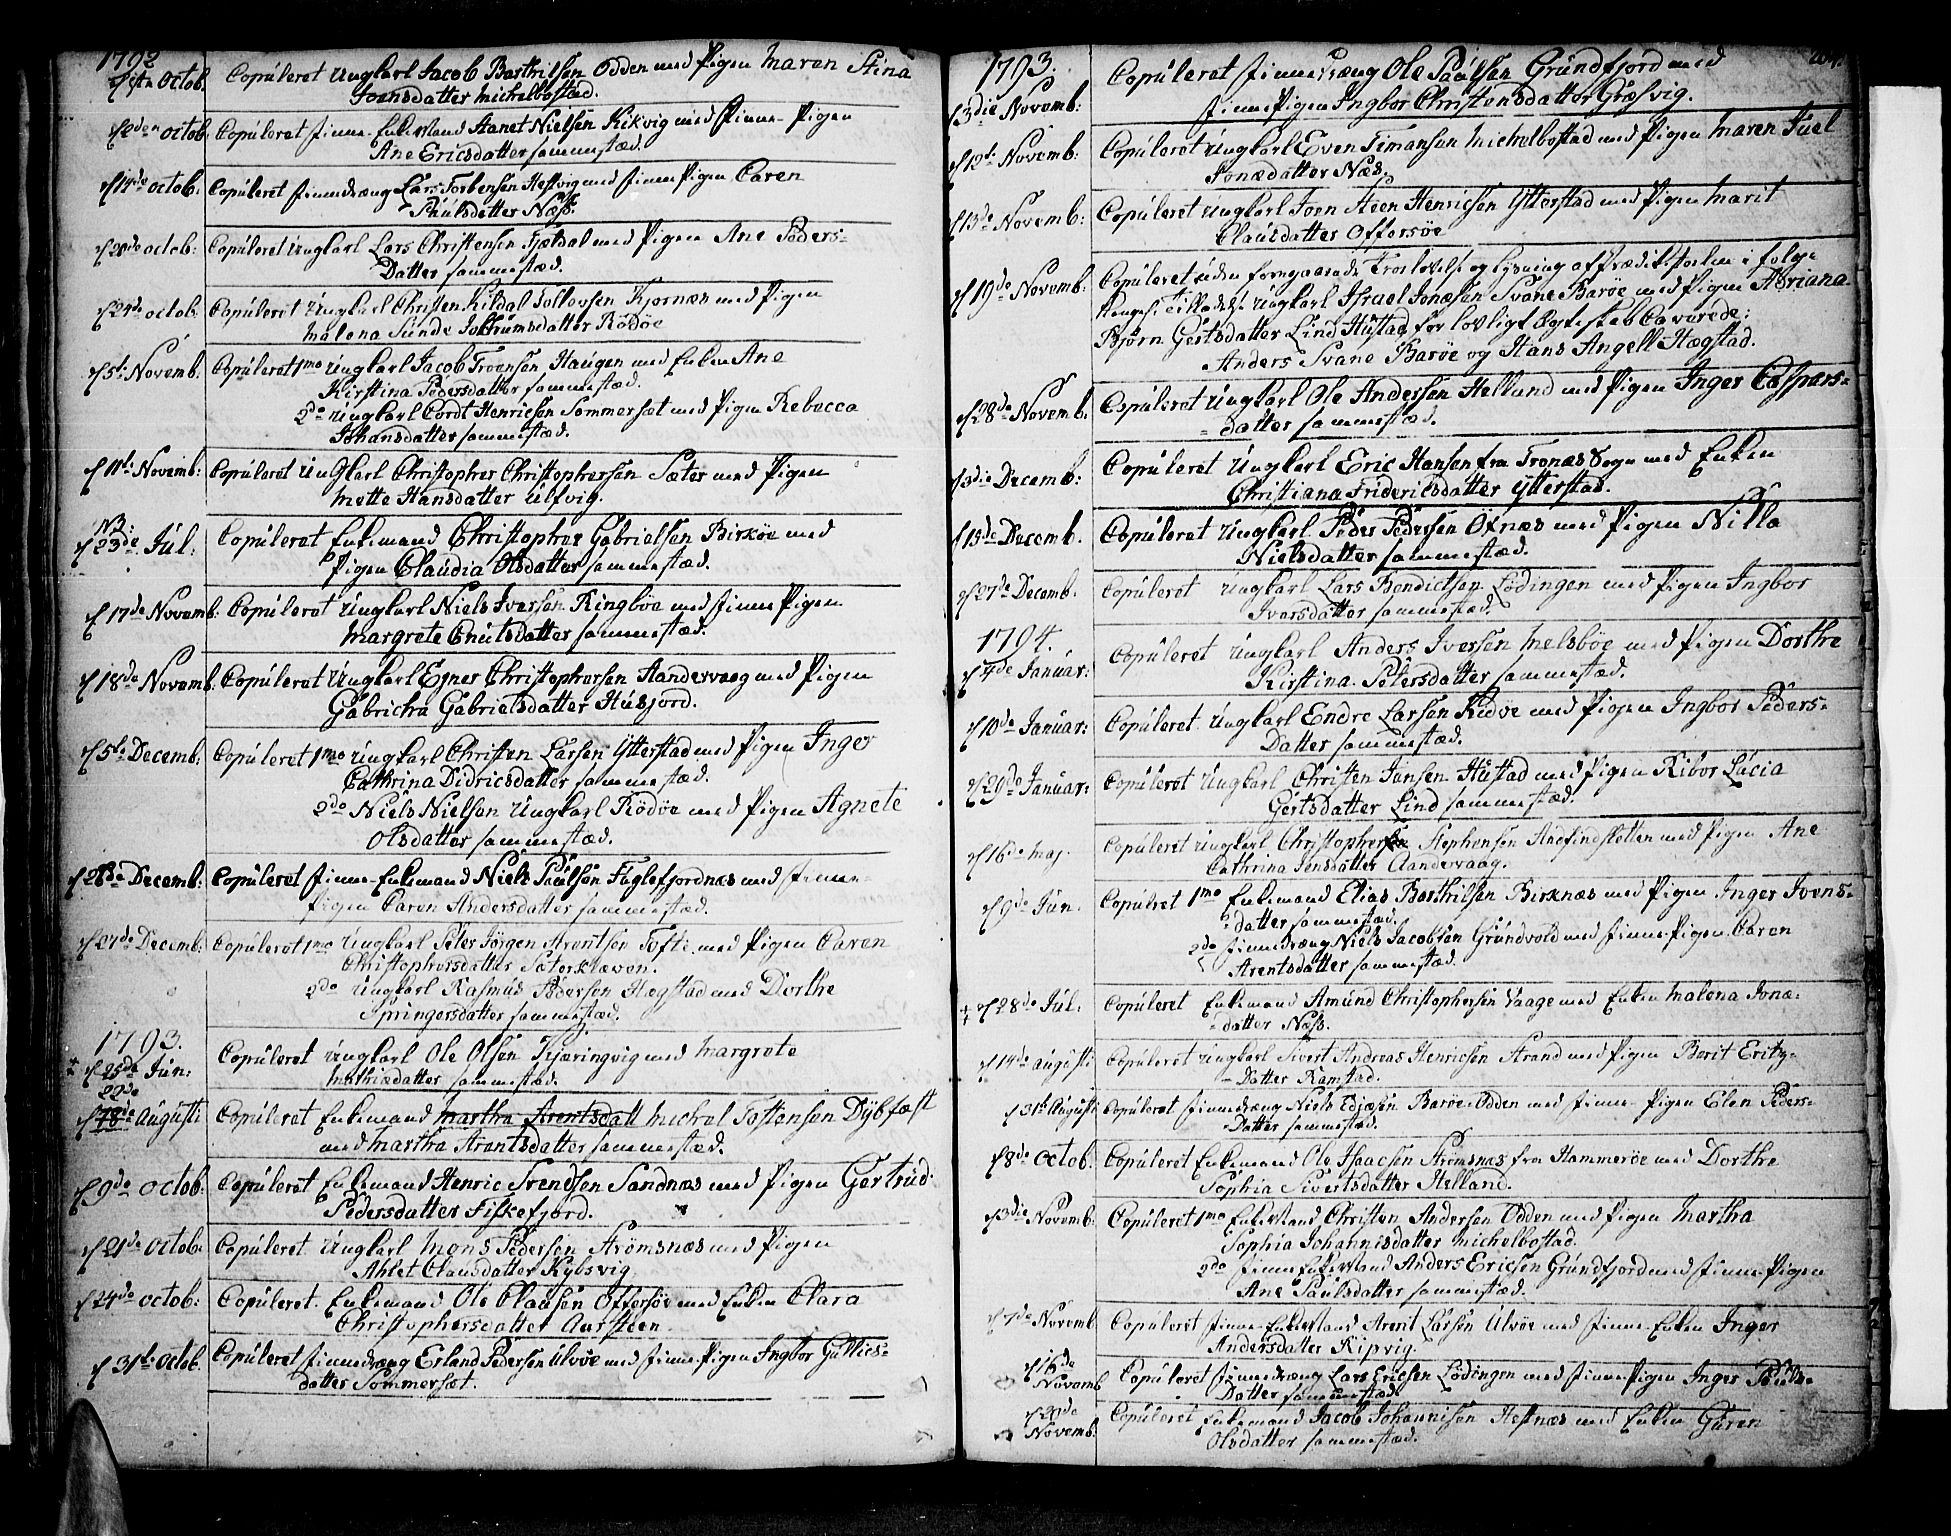 1792
Octob. Copúleret Ungkarl Jacob Barthilsen Odden med Pigen Maren Stina
Joensdatter Michelbostad.
octob Copúleret finne Enkemand Nielsen Kikvig med finne Pigen
Ane Ericsdatter sammestæd.
d 14de octob. Copúleret finnedræng Lars Torbensen Hestvig med finne Pigen Caren
Páúlsdatter Næss.
d 20de octob: Copúleret Ungkarl Lars Christensen Fjeldal med Pigen Ane Peders-
Datter sammestæd.
d 24de octob: Copúleret Ungkarl Christen Kildal Tollovsen Kjornæs med Pigen
Malena Súnde datter Rödöe
d 5te Novemb. Copúleret 1mo Ungkarl Jacob Troensen Haugen med Enken Ane
Kirstina Pedersdatter sammestæd.
2do Ungkarl Cordt Henricsen Sommersæt med Pigen Rebecca
Johansdatter sammestæd.
d 11te Novemb: Copúleret Ungkarl Christopher Christophersen Sæter med Pigen
Mette Hansdatter Ulvvig.
d 23de Jul: Copúleret Enkemand Christopher Gabrielsen Birköe med
Pigen Claúdia Olsdatter sammestæd.
d 17de Novemb: Copúleret Ungkarl Niels Iversen Ringböe med finne Pigen
Margrete Cnútsdatter sammestæd.
d 18de Novemb. Copúleret Ungkarl Egner Christophersen Sandervaag med Pigen
Gabrielsdatter Húsjord.
d 5te Decemb: Copúleret 1mo Ungkarl Christen Larsen Ytterstad med Pigen Inger
Cathrina Didricsdatter sammestæd.
2do Niels Nielsen Ungkarl Rödöe med Pigen Agnete
Olsdatter sammestæd.
d 26de Decemb: Copúleret finne Enkemand Niels Paúlsen Fúglefjordnæs med finne-
pigen Caren Andersdatter sammestæd.
d 27de Decemb: Copúleret 1mo Ungkarl Peter Jörgen Arentsen Tofte med Pigen Caren
Christophersdatter Sæterkleven.
2do Ungkarl Rasmús Pedersen Hægstad med Dorthe
Springersdatter sammestæd.
1793.
d 25de Jun: Copúleret Ungkarl Ole Olsen Kjæringvig med Margrete
Mathiædatter sammestæd.
22de
d 18de Augusti Copúleret Enkemand Martha Arentsdatt Michel Tostensen Dýbfæst
med Martha Arentsdatter sammestæd.
d 9de Octob: Copúleret Enkemand Henric Svendsen Sandnæs med Pigen Gertrúd
Pedersdatter Fiskefjord.
d 21de Octob. Copúleret Ungkarl Mons Pedersen Strömsnæs med Pigen
Ahlet Clausdatter Kybsvig
d 24de octob: Copúleret. Enkemand Ole Claúsen Offersöe med Enken Clara
Christophersdatter Aarsteen
d 31te Octob. Copúleret finnedræng Erland Pedersen Ulvöe med finne Pigen Ingbor Gúllics-
datter Sommersæt.
1793.
204.
d 3die Novemb: Copúleret finnedræng Ole Paúlsen Gründfjord med
finne Pigen Ingbor Christensdatter Græsvig.
d 12te Novemb: Copúleret Ungkarl Even Timansen Michelbostad med Pigen Maren Juel
Jonædatter Næs.
d 13de Novemb: Copúleret Ungkarl Joen Steen Henricsen Ytterstad med Pigen Marit
Claúsdatter Offersöe
d 19de Novemb: Copúleret úden foregaaende Troelovelse og lysning af Prædikestolen i følge
Kongel: Tilladelse Ungkarl Israel Jonæsen Svane Baröe med Pigen Adriana
Bjørn Gertsdatter Lind Hústad for lovligt Ægteskab Caverede:
Anders Svane Baröe og Hans Angell Hægstad.
d 28de Novemb. Copúleret Ungkarl Ole Andersen Helland med Pigen Inger Caspars-
datter sammestæd.
d 3die Decemb: Copúleret Ungkarl Eric Hansen fra Tronæs Sogn med Enken
Christiana Fridericsdatter Ytterstad.
d 15de Decemb. Copúleret Ungkarl Peder Pedersen Öxnæs med Pigen Nilla
Nielsdatter sammestæd.
d 27de Decemb: Copúleret Ungkarl Lars Bendictsen Lödingen med Pigen Ingbor
Iversdatter sammestæd.
1794.
d 4de Januar: Copúleret Ungkarl Anders Iversen Melsböe med Pigen Dorthe
Kirstina Petersdatter sammestæd.
d 10de Januar: Copúleret Ungkarl Endre Larsen Rödöe med Pigen Ingbor Peders-
Datter sammestæd.
d 29de Januar: Copúleret Ungkarl Christen Jensen Hústad med Pigen Ribor Lúcia
Gertsdatter Lind sammestæd.
d 16de Maj. Copúleret Ungkarl Christopher Stephensen Andfindsletten med Pigen Ane
Cathrina Jensdatter Sandervaag.
d 9de Jun. Copúlret 1mo Enkemand Elias Barthilsen Birknæs med Pigen Inger Ivers-
datter sammestæd.
2do finnedræng Niels Jacobsen Gründvold med finne Pigen Caren
Arentsdatter sammestæd.
d 28de Jul: Copúleret Enkemand Amúnd Christophersen Vaage med Enken Malena Jonæ-
datter Næss.
d 14de Augústi Copúleret Ungkarl Sivert Andreas Henricsen Strand med Pigen Berit Eritz-
Datter Ramstad.
d 31te Augústi Copúleret finnedræng Niels Baröe Odden med finne Pigen Elen Peders-
Datter sammestæd.
d 8de Octob. Copúleret Enkemand Ole Isaacsen Strömsnæs fra Hammeröe med Dorthe
Sophia Sivertsdatter Helland.
d 3die Novemb: Copúleret 1mo Enkemand Christen Andersen Odden med Pigen Martha
Sophia Johannisdatter Michelbostad.
2do finne Enkemand Anders Ericsen Gründfjord med finne Pigen
Ane Paúlsdatter sammestæd.
d 7de Novemb Copúleret finne Enkemand Arent Larsen Ulvöe med finne Enken Inger
Andersdatter Kipvig.
d 16de
Novemb Copúleret finnedræng Lars Ericsen Lödingen med finne Pigen Inger Peders-
Datter sammestæd.
d 20de
Novemb: Copúleret Enkemand Jacob Johannisen Hestnæs med Enken Gúren
Olsdatter sammestæd.